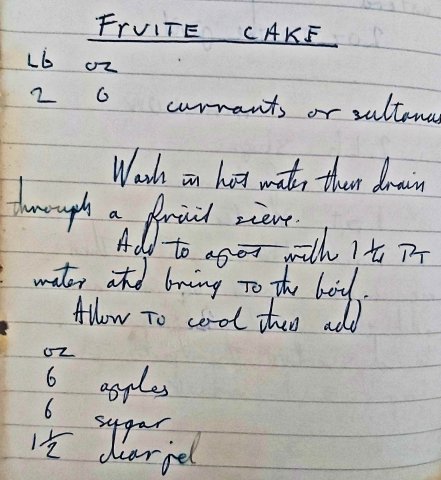 FRUITE CAKE
Lb oz
2 6 currants or sultanas
Wash in hot water then drain
through a fruit sieve.
Add to a pot with 1 ½ PT
water and bring To the boil.
Allow To cool then add
oz
6 apples
6 sugar
1 ½ clearjel